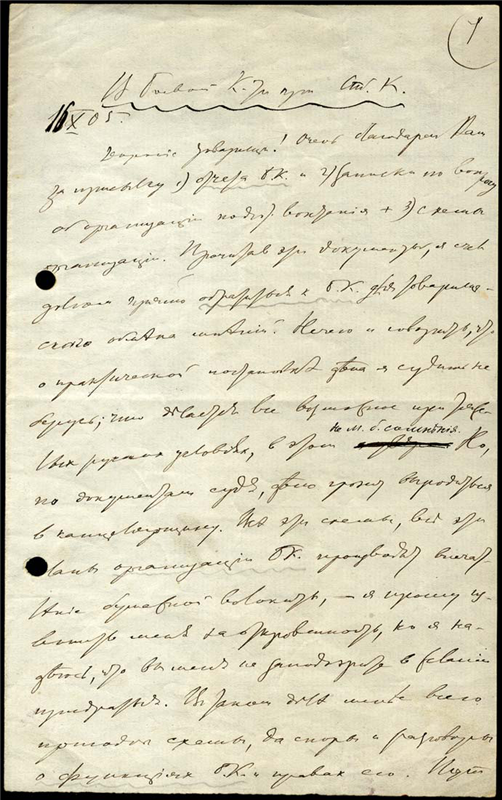 1
В боевой К-т при СПб. К.
16/X 05.
Дорогие товарищи! Очень благодарен Вам
за присылку 1) отчета БК и 2) записки по вопросу
об организации подгот. восстания + 3) схемы
организации. Прочитав эти документы, я счел
долгом прямо обратиться к БК. для товарище-
ского обмена мнений. Нечего и говорить, что
о практической постановке дѣла я судить не
берусь; что дѣлается все возможное при тяже-
лых русских условиях, в этом не м. б. сомнения. Но,
по документам судя, дѣло грозит выродиться
в канцелярщину. Всѣ эти схемы, всѣ эти
планы организации БК. производят впечат-
лѣние бумажной волокиты, — я прошу из-
винить меня за откровенность, но я на-
дѣюсь, что вы меня не заподозрите в желании
придраться. В таком дѣлѣ менѣе всего
пригодны схемы, да споры и разговоры
о функциях БК и правах его. Тут